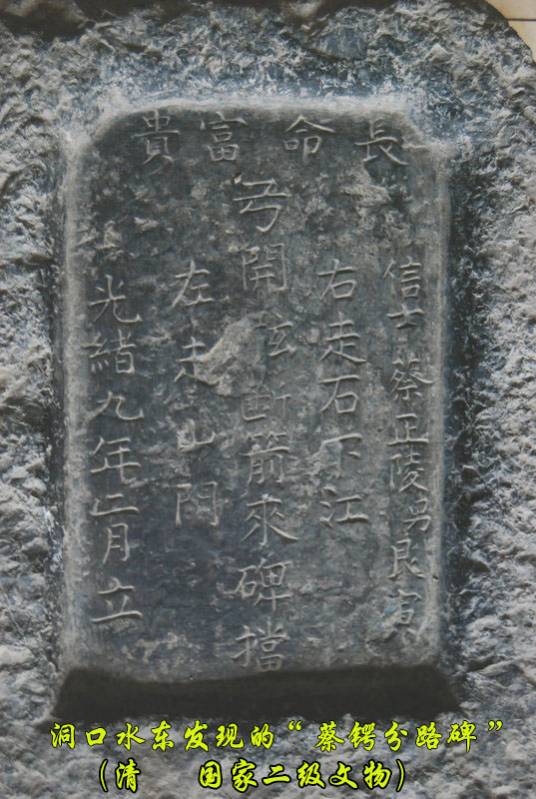 長命富貴
信士蔡正陵男艮寅
右走石下江
弓開弦断箭來碑擋
左走山門
光緒九年二月立
洞口水东发现的“蔡锷分路碑”
(清 国家二级文物)